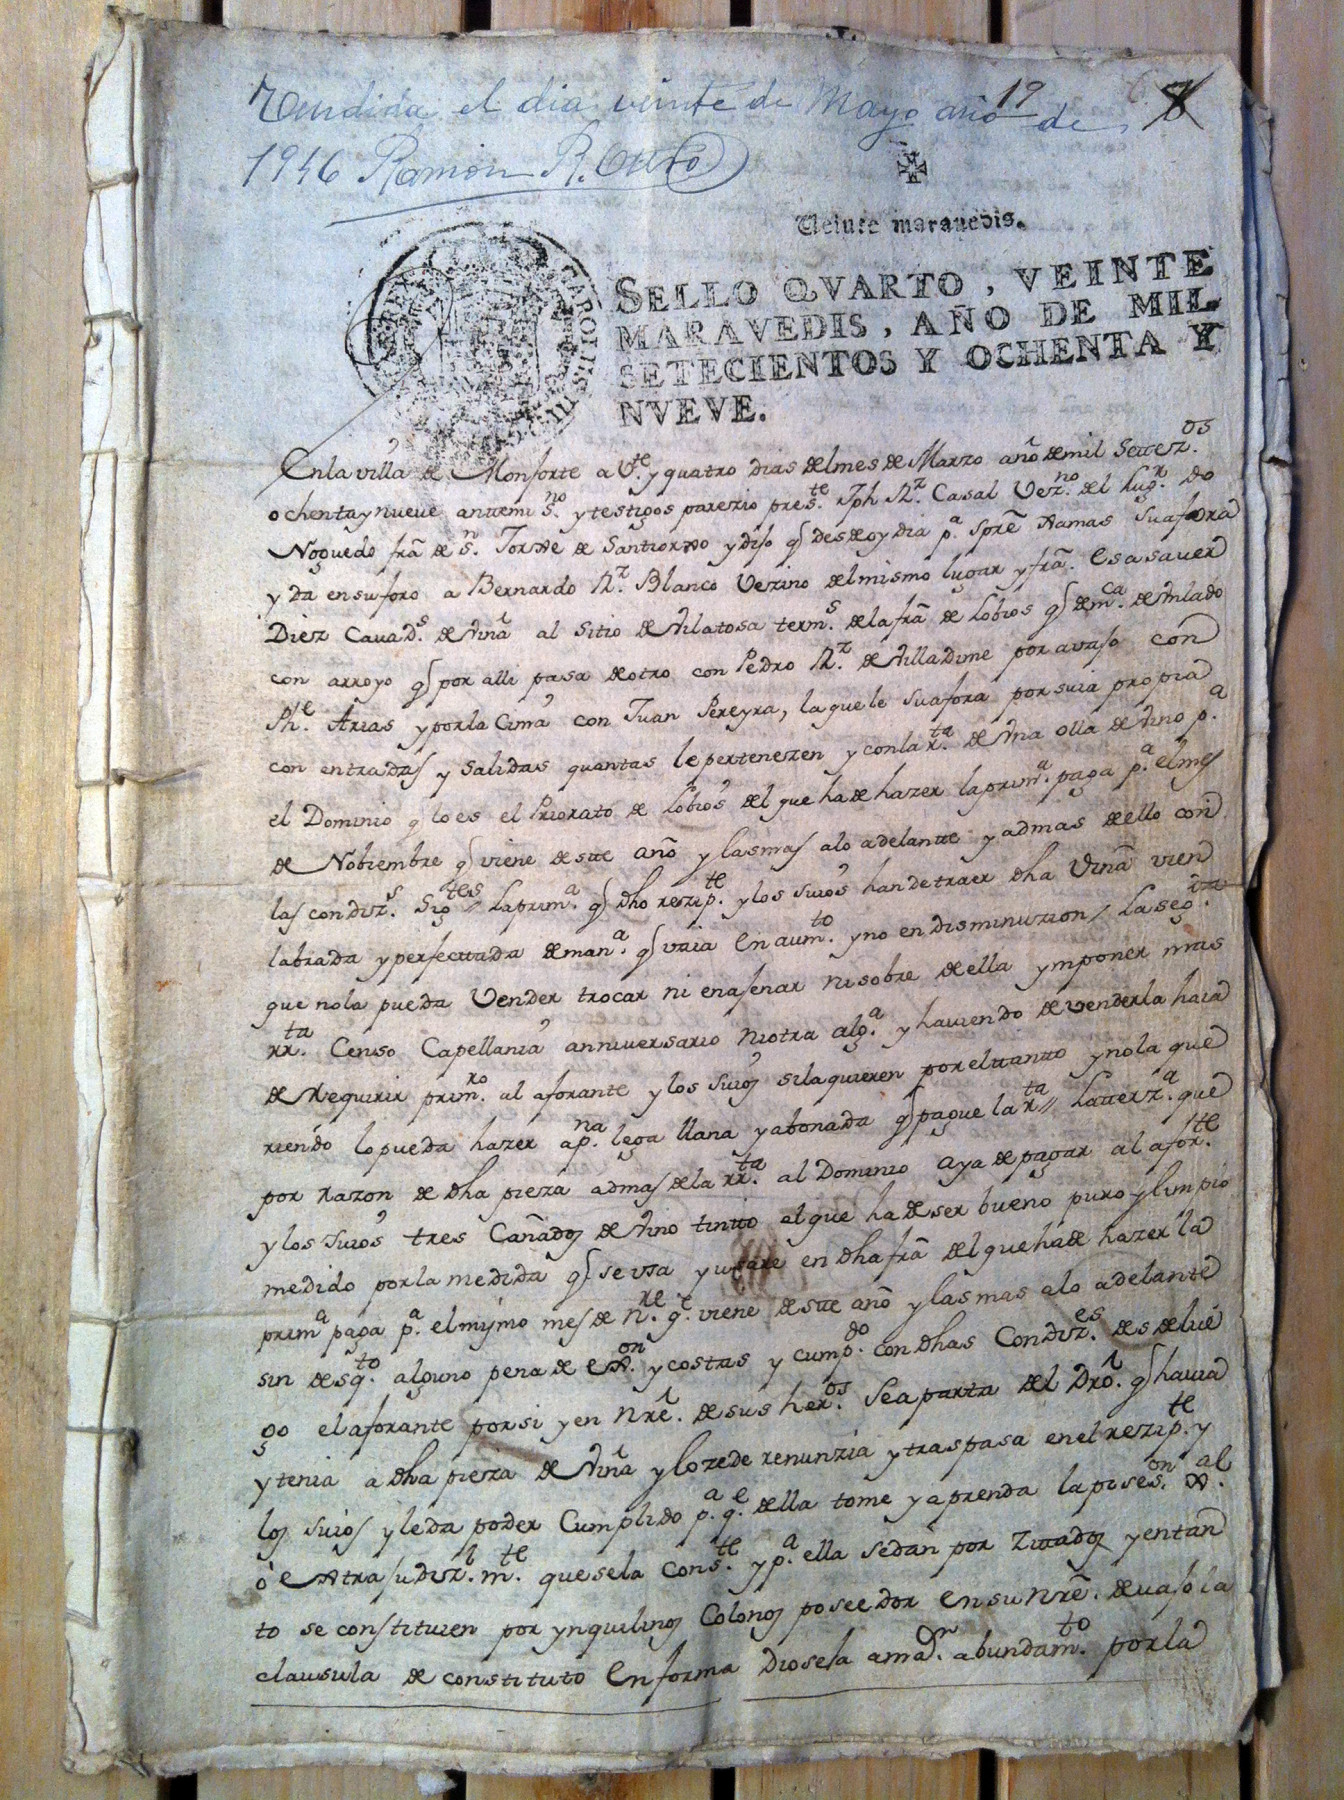 Vendida el dia veinte de Mayo año de
19
1946 Ramón R.
Veinte maravedis.
SELLO QVARTO, VEINTE
MARAVEDIS, AÑO DE MIL
SETECIENTOS Y OCHENTA Y
NVEVE.
CAROLUS III
En la villa de Monforte a Vte. y quatro dias del mes de Marzo año de mil Settezos.
ochenta y nueve ante mi Sno. y testigos parezio preste. Jph Rz. Casal Vezno. del lugr. do
Noguedo fra de Sn. Jorxe de Santiorxo y dijo q desde oy dia pa. Spre xamas Suafora
y da en su foro a Bernardo Rz. Blanco Vezino del mismo lugar y fra. Es a saver
Diez Cavads. de viña al Sitio de Vilatosa terms. de la fra de Lobios q demca. de Vn lado
con arroyo q por alli pasa de otro con Pedro Rz. de Villadime por avajo con
Phe. Arias y por la Cima con Juan Pereyra, la que le Suafora por suia propia
con entradas y Salidas quantas le pertenezen y con la rta. de Vna olla de Vino pa.
el Dominio q lo es el Priorato de Lobios del que ha de hazer la prima. paga pa. el mes
de Nobiembre q viene deste año y las mas alo adelante y admas de ello con
las condizs. Sigtes // La prima. q dho rezipte. y los suios han de traer dha Viña vien
labrada y perfecttada de mana. q vaia En aumto. y no en disminuzion / La Segda.
que nola pueda Vender trocar ni enajenar ni sobre de ella ymponer mas
rrta. Censo Capellania anniversario ni otra alga. y haviendo de venderla haia
de Requirir primro. al aforante y los suios si la quieren por el tanto y nola que
riendo lo pueda hazer a pna. lega llana y abonada q pague la rta // La terza. que
por Razon de dha pieza admas de la rrta. al Dominio aya de pagar al aforte.
y los suios tres Cañados de Vino tinto el que ha de ser bueno puro y limpio
medido por la medida q se usa y usare en dha fra del que ha de hazer la
prima paga pa. el mismo mes de Nre. qe. viene deste año y las mas alo adelante
sin desqto. alguno pena de exon. y costas y cumpdo. con dhas Condizes. desde lue
go el aforante por si y en Nre. de sus heros. Se aparta del Dro. q havia
y tenia a dha pieza de Viña y lo zede renunzia y traspasa en el rezipte. y
los suios y le da poder Cumplido pa. qe. della tome y aprenda la poseson. Rl.
ó extrajudizl. mte. que se la Conste. y pa. ella sedan por zitados y entan
to se constituien por ynquilinos Colonos poseedor en su nre. devajo la
clausula de constituto En forma Diosela a maor. abundamto. por la